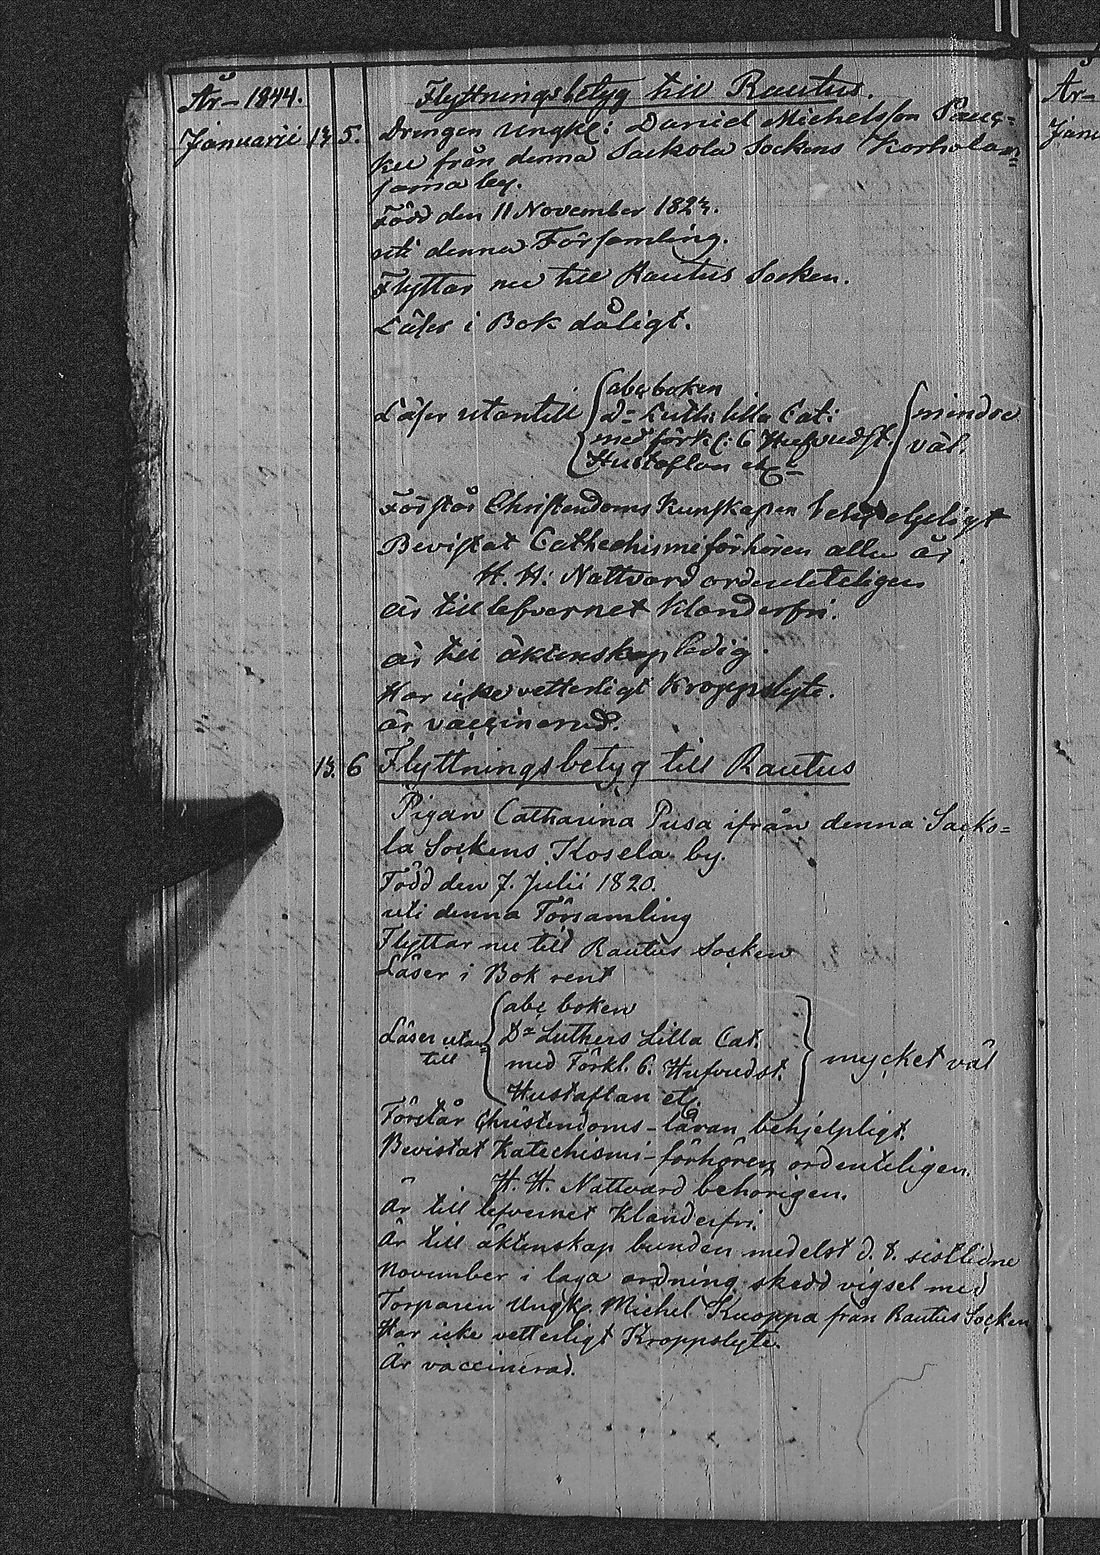 År 1844.
Flyttningsbetyg till Rautus.
Januarii 13. 5. Drengen Ungk: Daniel Michelsson Pauc=
ku från denna Sackola Sockens Korholan=
jama by.
Född den 11 November 1823.
uti denna Församling.
Flyttar nu till Rautus Socken.
Läser i Bok dåligt.
abc boken
Läser utantill D- Luth: lilla Cat: mindre
med förkl: 6 Hufvudst. väl.
Hustaflan etc
Förstår Christendoms Kunskapen behjelpligt
Bevistat Cathechismiförhören alla år
H. H: Nattvard ordenteligen
är till lefvernet klanderfri.
är till äktenskap ledig.
Har icke vetterligt Kroppslyte.
är vaccinerad.
13. 6 Flyttningsbetyg till Rautus
Pigan Catharina Pusa ifrån denna Sacko=
la Sockens Kosela by.
Född den 7. Julii 1820.
uti denna Församling
Flyttar nu till Rautus Socken
Läser i Bok rent
abc boken
Läser utan Dr Luthers Lilla Cat.
till med Förkl. 6. Hufvudst. mycket väl
Hustaflan etc.
Förstår Christendoms-läran behjelpligt.
Bevistat Katechismi-förhören ordenteligen.
" H. H. Nattvard behörigen.
Är till lefvernet Klanderfri.
Är till äktenskap bunden medelst d. 8. sistlidne
November i laga ordning skedd vigsel med
Torparen Ungk. Michel Kuoppa från Rautus Socken
Har icke vetterligt Kroppslyte.
Är vaccinerad.
År-
Janu